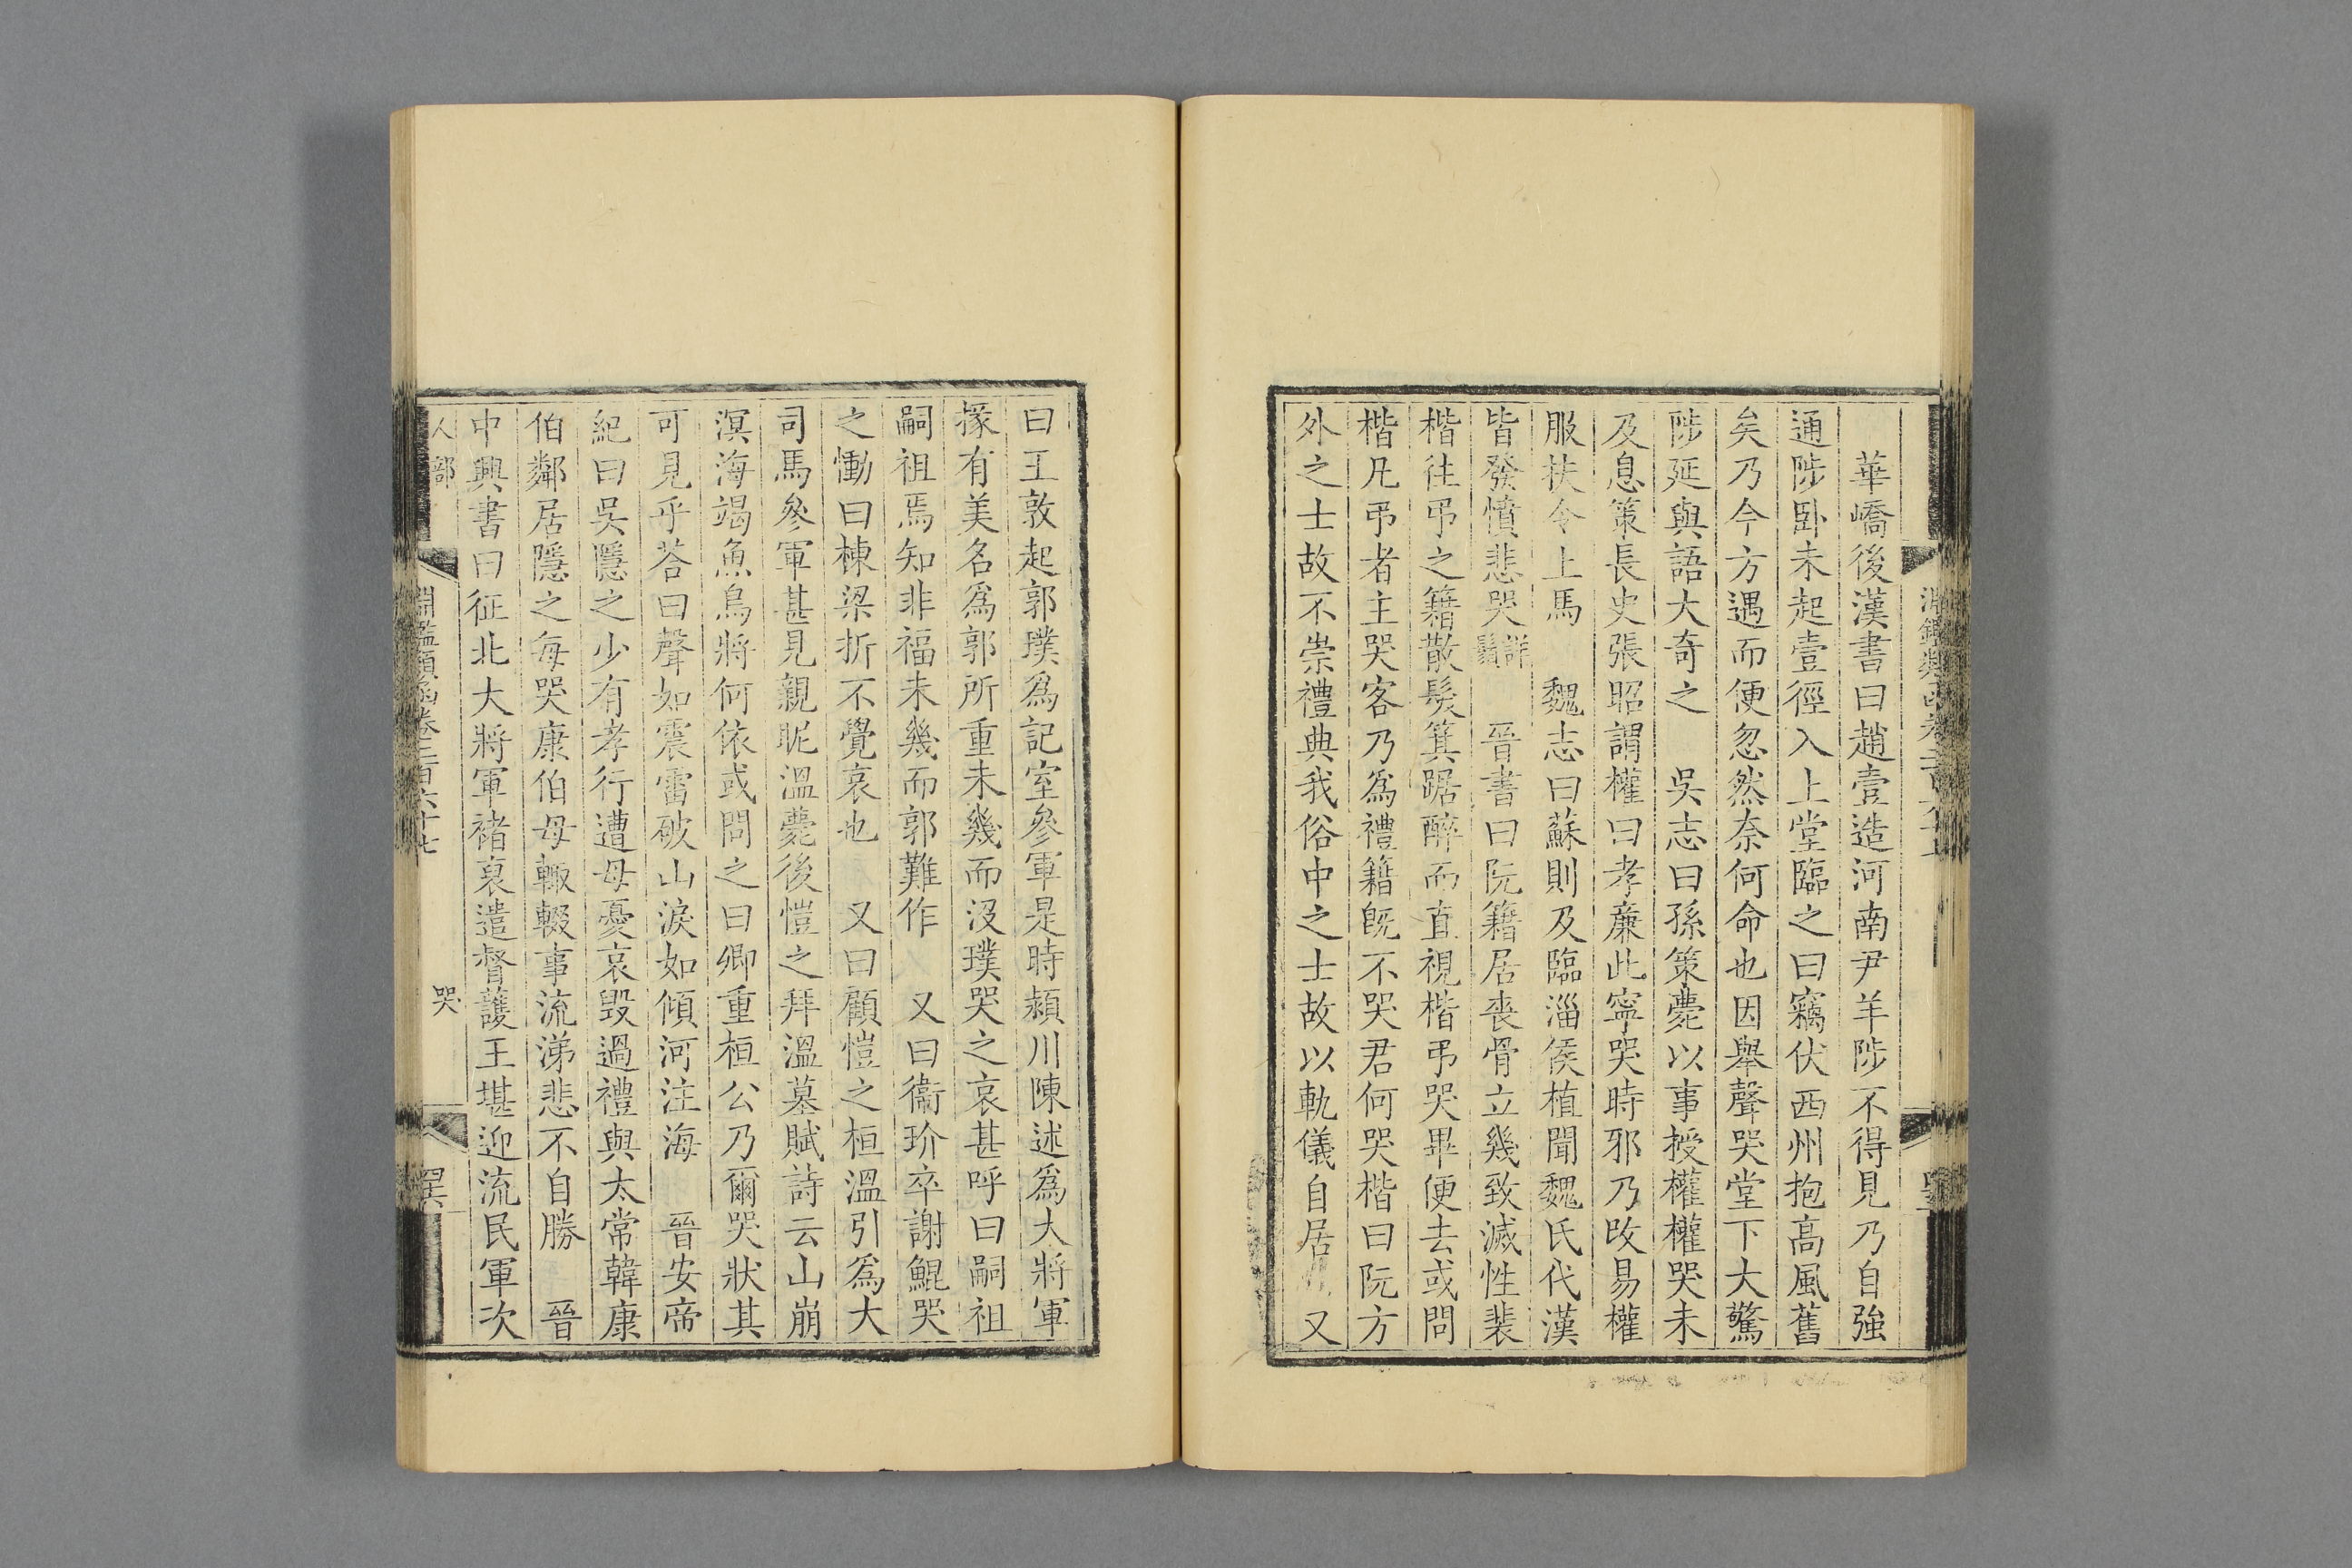 華嶠後漢書曰趙壹造河南尹羊陟不得見乃自強
通陟卧未起壹徑入上堂臨之曰竊伏西州抱高風舊
矣乃今方遇而便忽然奈何命也因舉聲哭堂下大驚
陟延與語大奇之　吳志曰孫策薨以事授權權哭未
及息策長史張昭謂權曰孝亷此寧哭時邪乃改易權
服扶令上馬　魏志曰蘇則及臨淄侯植聞魏氏代漢
皆發憤悲哭詳鬚　晉書曰阮籍居喪骨立幾致滅性裴
楷往弔之籍散髮箕踞醉而直視楷弔哭畢便去或問
楷凡弔者主哭客乃爲禮籍旣不哭君何哭楷曰阮方
外之士故不崇禮典我俗中之士故以軌儀自居　又
曰王敦起郭璞爲記室參軍是時潁川陳述爲大將軍
掾有美名爲郭所重未幾而沒璞哭之哀甚呼曰嗣祖
嗣祖焉知非福未幾而郭難作　又曰衞玠卒謝鯤哭
之慟曰棟梁折不覺哀也　又曰顧愷之桓溫引爲大
司馬參軍甚見親昵溫薨後愷之拜溫墓賦詩云山崩
溟海竭魚鳥將何依或問之曰卿重桓公乃爾哭狀其
可見乎荅曰聲如震雷破山淚如傾河注海　晉安帝
紀曰吳隱之少有孝行遭母憂哀毀過禮與太常韓康
伯鄰居隱之每哭康伯母輙輟事流涕悲不自勝　晉
中興書曰征北大將軍褚裒遣督護王堪迎流民軍次
人部
淵鑑類函卷二百六十七
哭